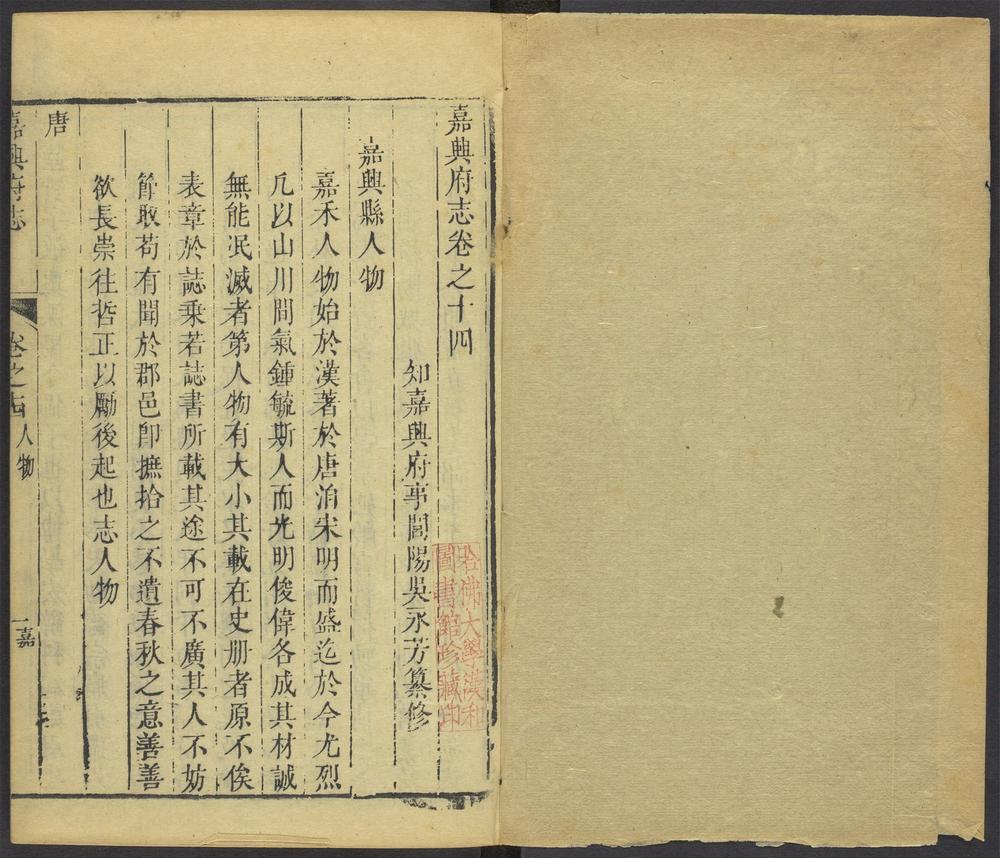 嘉興府志卷之十四
知嘉興府事閭陽吳永芳纂修
嘉興縣人物
嘉禾人物始於漢著於唐洎宋明而盛迄於今尤烈
凡以山川間氣鍾毓斯人而光明俊偉各成其材誠
無能泯滅者第人物有大小其載在史册者原不俟
表章於誌乘若誌書所載其途不可不廣其人不妨
節取苟有聞於郡邑卽摭拾之不遺春秋之意善善
欲長崇往哲正以勵後起也志人物
唐
嘉興府志 卷之十四 人物 一嘉
哈佛大學漢和
圖書館珍藏印